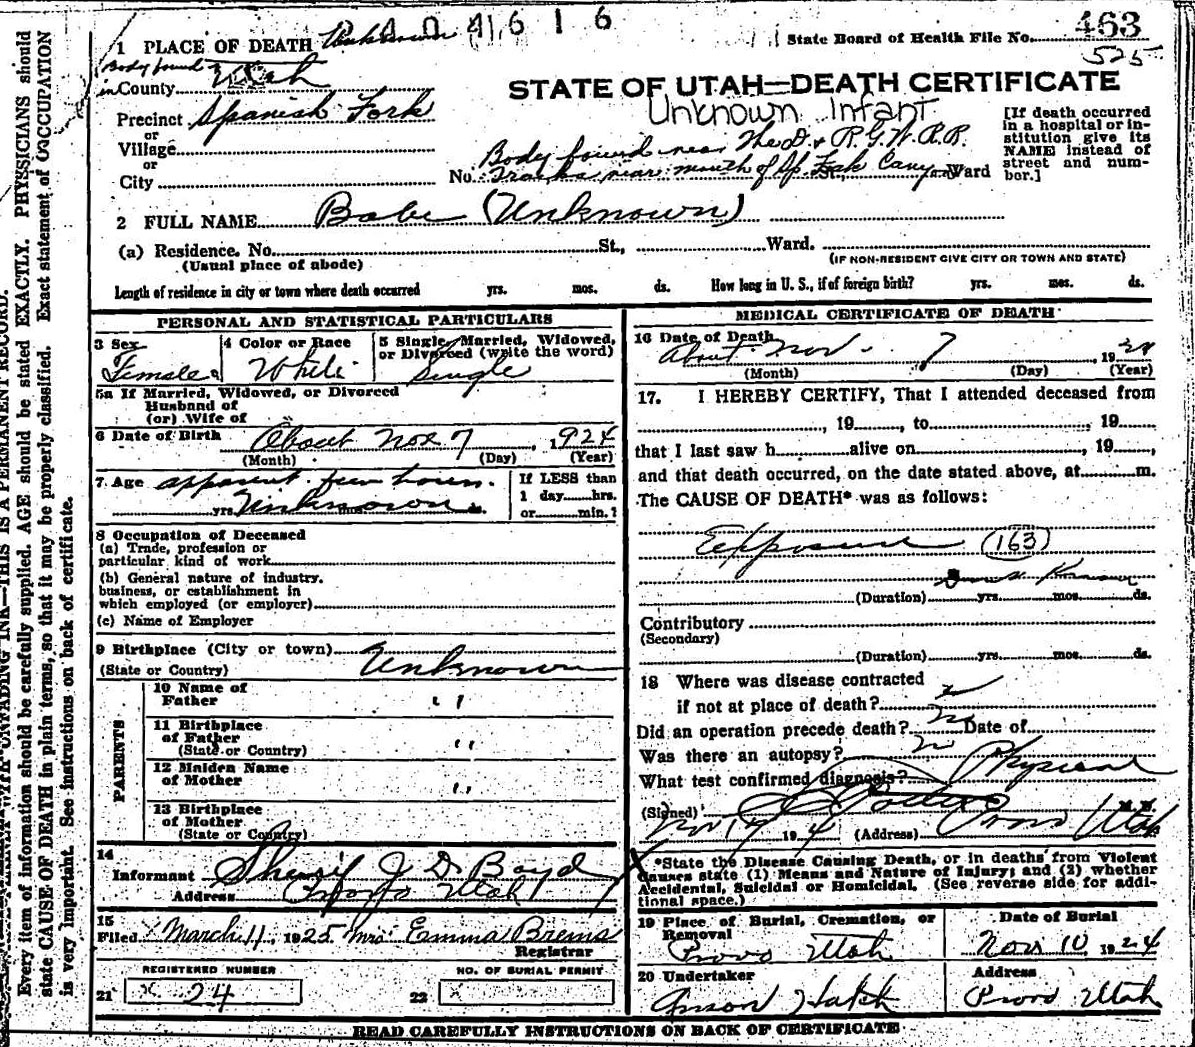 41616
463
525
1 PLACE OF DEATH Unknown
State Board of Health File No.
Body found in County Utah
STATE OF UTAH—DEATH CERTIFICATE
Unknown Infant
Precinct Spanish Fork
or
Village
or
City
Body found near The D & R.G.W.R.R.
No. Tracks near mouth of Sp. Fork Canyon Ward
[If death occurred in a hospital or institution give its NAME instead of street and number.]
2 FULL NAME Babe (Unknown)
(a) Residence. No. St., Ward.
(Usual place of abode)
(IF NON-RESIDENT GIVE CITY OR TOWN AND STATE)
Length of residence in city or town where death occurred yrs. mos. ds. How long in U. S., if of foreign birth? yrs. mos. ds.
PERSONAL AND STATISTICAL PARTICULARS
3 Sex
Female
4 Color or Race
White
5 Single, Married, Widowed, or Divorced (write the word)
Single
5a If Married, Widowed, or Divorced
Husband of
(or) Wife of
6 Date of Birth About Nov 7, 1924
(Month) (Day) (Year)
7 Age apparent few hours.
yrs. Unknown ds.
If LESS than
1 day hrs.
or min.?
8 Occupation of Deceased
(a) Trade, profession or
particular kind of work
(b) General nature of industry.
business, or establishment in
which employed (or employer)
(c) Name of Employer
9 Birthplace (City or town)
(State or Country) Unknown
PARENTS
10 Name of
Father "
11 Birthplace
of Father "
(State or Country)
12 Maiden Name
of Mother "
13 Birthplace
of Mother "
(State or Country)
14
Informant Sheriff J D Boyd
Address Provo Utah
15
Filed March 11, 1925 Mrs Emma Brems
Registrar
REGISTERED NUMBER
21 x 24
NO. OF BURIAL PERMIT
22 x
MEDICAL CERTIFICATE OF DEATH
16 Date of Death
About Nov. 7, 1924
(Month) (Day) (Year)
17. I HEREBY CERTIFY, That I attended deceased from
, 19 , to , 19
that I last saw h alive on , 19 ,
and that death occurred, on the date stated above, at m.
The CAUSE OF DEATH* was as follows:
Exposure (163)
(Duration) yrs. mos. ds.
Contributory
(Secondary)
(Duration) yrs. mos. ds.
18 Where was disease contracted
if not at place of death?
Did an operation precede death? no Date of
Was there an autopsy? no
What test confirmed diagnosis? Physical
(Signed) M. D.
19 4 (Address) Provo Utah
*State the Disease Causing Death, or in deaths from Violent
Causes state (1) Means and Nature of Injury; and (2) whether
Accidental, Suicidal or Homicidal. (See reverse side for additional space.)
19 Place of Burial, Cremation, or Removal
Provo Utah
Date of Burial
Nov 10, 1924
20 Undertaker
Anson Hatch
Address
Provo Utah
READ CAREFULLY INSTRUCTIONS ON BACK OF CERTIFICATE
THIS IS A PERMANENT RECORD.
Every item of information should be carefully supplied. AGE should be stated EXACTLY. PHYSICIANS should
state CAUSE OF DEATH in plain terms, so that it may be properly classified. Exact statement of OCCUPATION
is very important. See instructions on back of certificate.